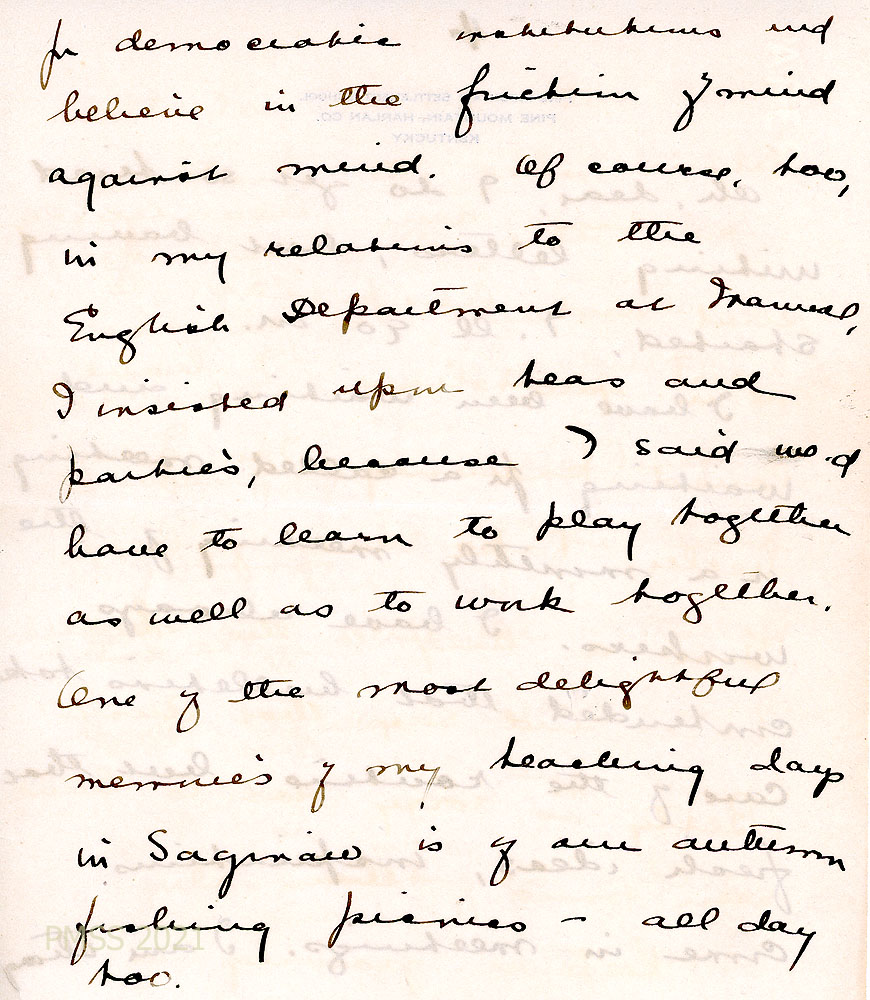 for democratic institutions and
believe in the friction of mind
against mind. Of course, too,
in my relations to the
English Department at
I insisted upon teas and
parties, because I said we'd
have to learn to play together
as well as to work together.
One of the most delightful
memories of my teaching days
in Saginaw is of our autumn
fishing picnics – all day
too.
PMSS 2021